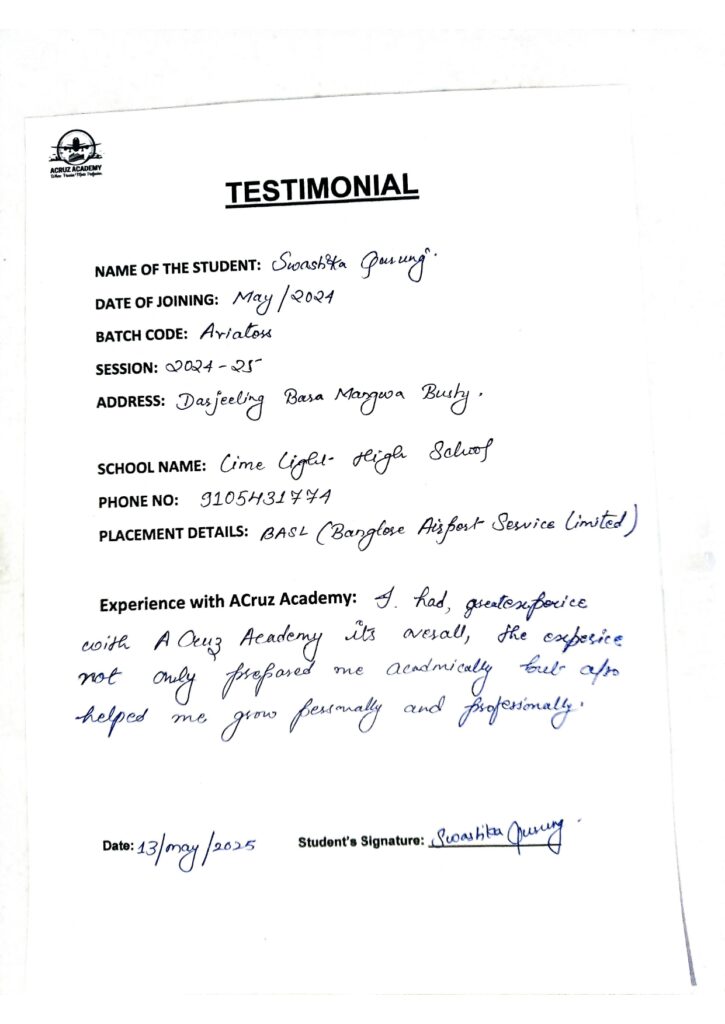 ACRUZ ACADEMY
TESTIMONIAL
NAME OF THE STUDENT: Swashika Gurung.
DATE OF JOINING: May/2024
BATCH CODE: Aviators
SESSION: 2024-25
ADDRESS: Darjeeling Bara Mangwa Busty.
SCHOOL NAME: Lime Light High School
PHONE NO: 9105431774
PLACEMENT DETAILS: BASL (Banglore Airport Service Limited)
Experience with ACruz Academy: I had, greatexperice
with A Cruz Academy its overall, the experice
not only prepared me acadmically but also
helped me grow personally and professionally.
Date: 13/may/2025 Student's Signature: Swashika Gurung.